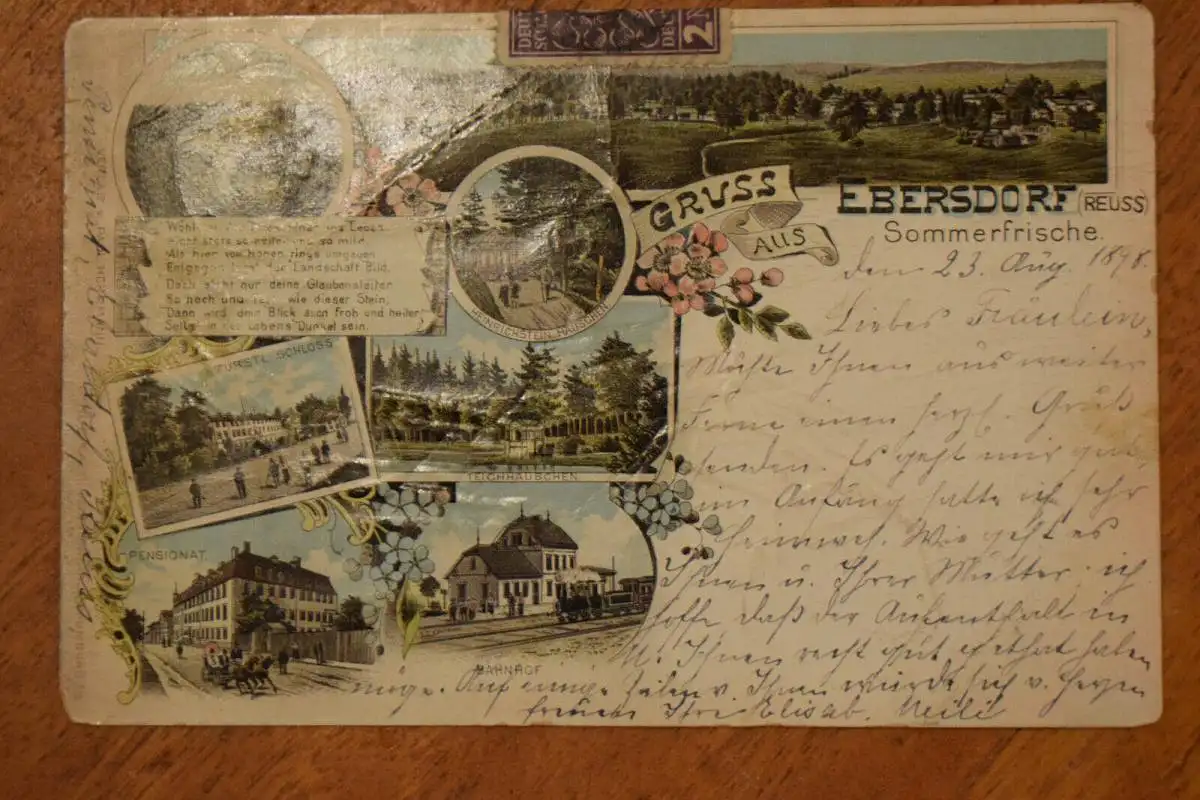 2
GRUSS
AUS
EBERSDORF (REUSS)
Sommerfrische.
nicht stets so heiter und so mild,
Als hier von Höhen rings umgeben
Entgegen Landschaft Bild.
Doch nur deine Glaubensleiter
So hoch und wie dieser Stein,
Dann wird dein Blick auch froh und heiter
Selbst in des Lebens Dunkel sein.
HEINRICHSTEIN
FÜRSTL. SCHLOSS
TEICHHÄUSCHEN.
PENSIONAT.
BAHNHOF
den 23. Aug. 1898.
Liebes Fräulein,
Möchte Ihnen aus weiter
Ferne einen herzl. Gruß
senden. Es geht mir gut,
im Anfang hatte ich sehr
Heimweh. Wie geht es
Ihnen u. Ihrer Mutter ich
hoffe daß der Aufenthalt in
U. Ihnen recht gut gethan haben
möge. Auf einige Zeilen v. Ihnen würde sich v. Herzen
freuen Ihre Elisab. Meili